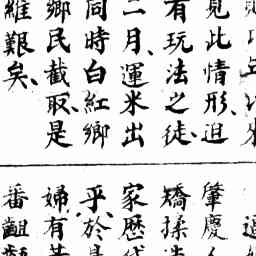 見此情形、迫
有玩法之徒、
二月、運米出
同時白紅鄉
鄉民截取、是
維艱矣、
肇慶
矯揉造
家歷
乎、於
婦有
番